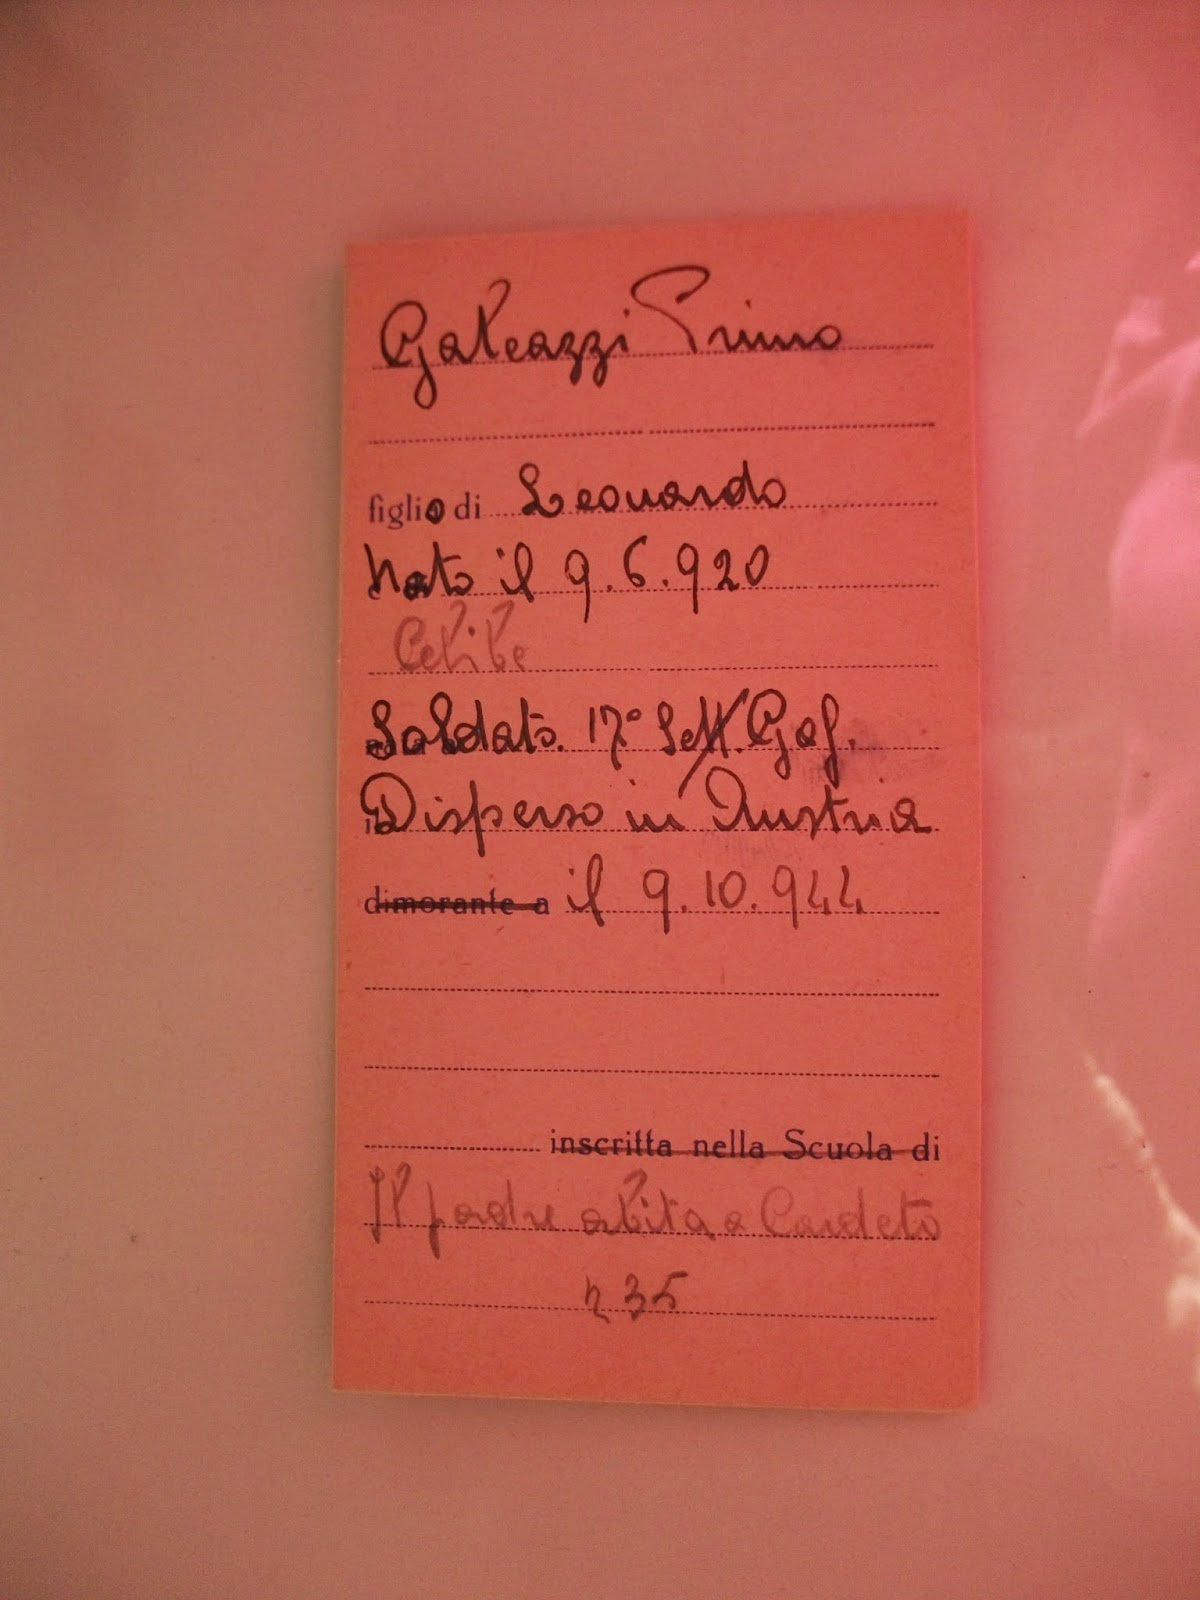 Galeazzi Primo
figlio di Leonardo
Nato il 9.6.920
Celibe
Soldato. 17° Sett. Gaf.
Disperso in Austria
dimorante a il 9.10.944
inscritta nella Scuola di
Il padre abita a Cardeto
n 35